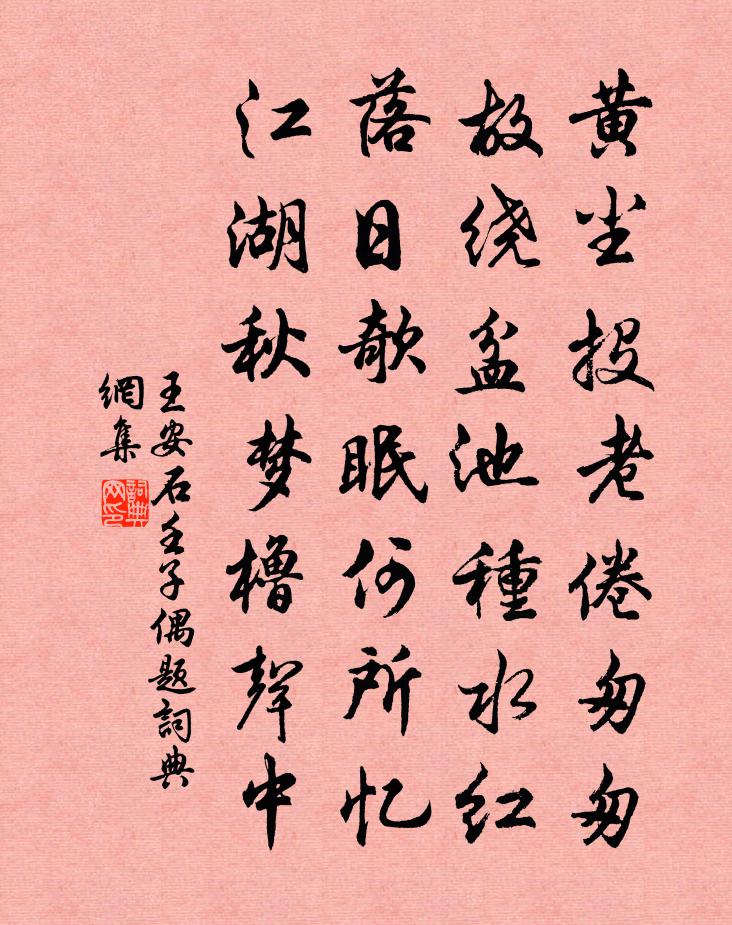 黄尘投老倦匆匆
故绕盆池種水红
落日欹眠何所忆
江湖秋梦橹聲中
王安石壬子偶题詞典
網集
詞典网印